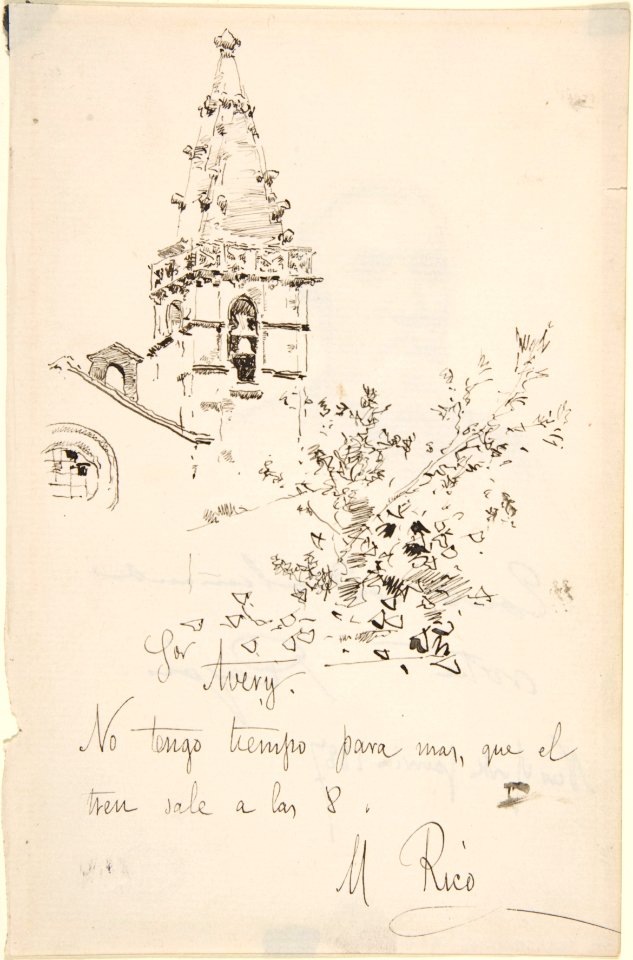 Sor Avery.
No tengo tiempo para mas, que el
tren sale a las 8.
M Rico